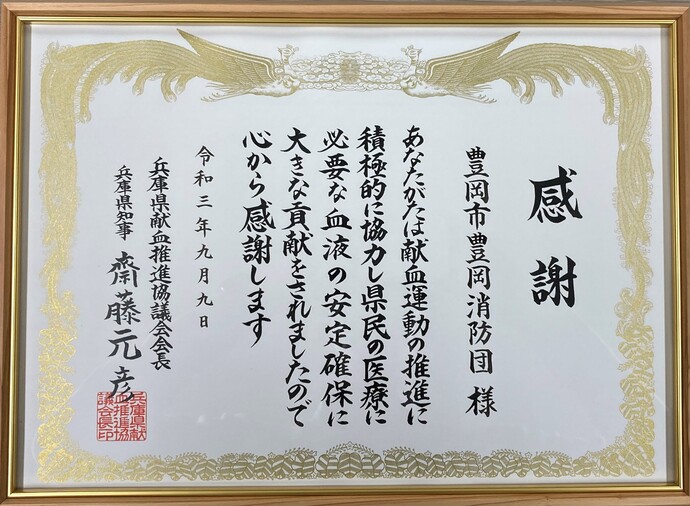 感謝
豊岡市豊岡消防団 様
あなたがたは献血運動の推進に
積極的に協力し県民の医療に
必要な血液の安定確保に
大きな貢献をされましたので
心から感謝します
令和三年九月九日
兵庫県献血推進協議会会長
兵庫県知事 齋藤元彦
兵庫県献
血推進協
議会長印